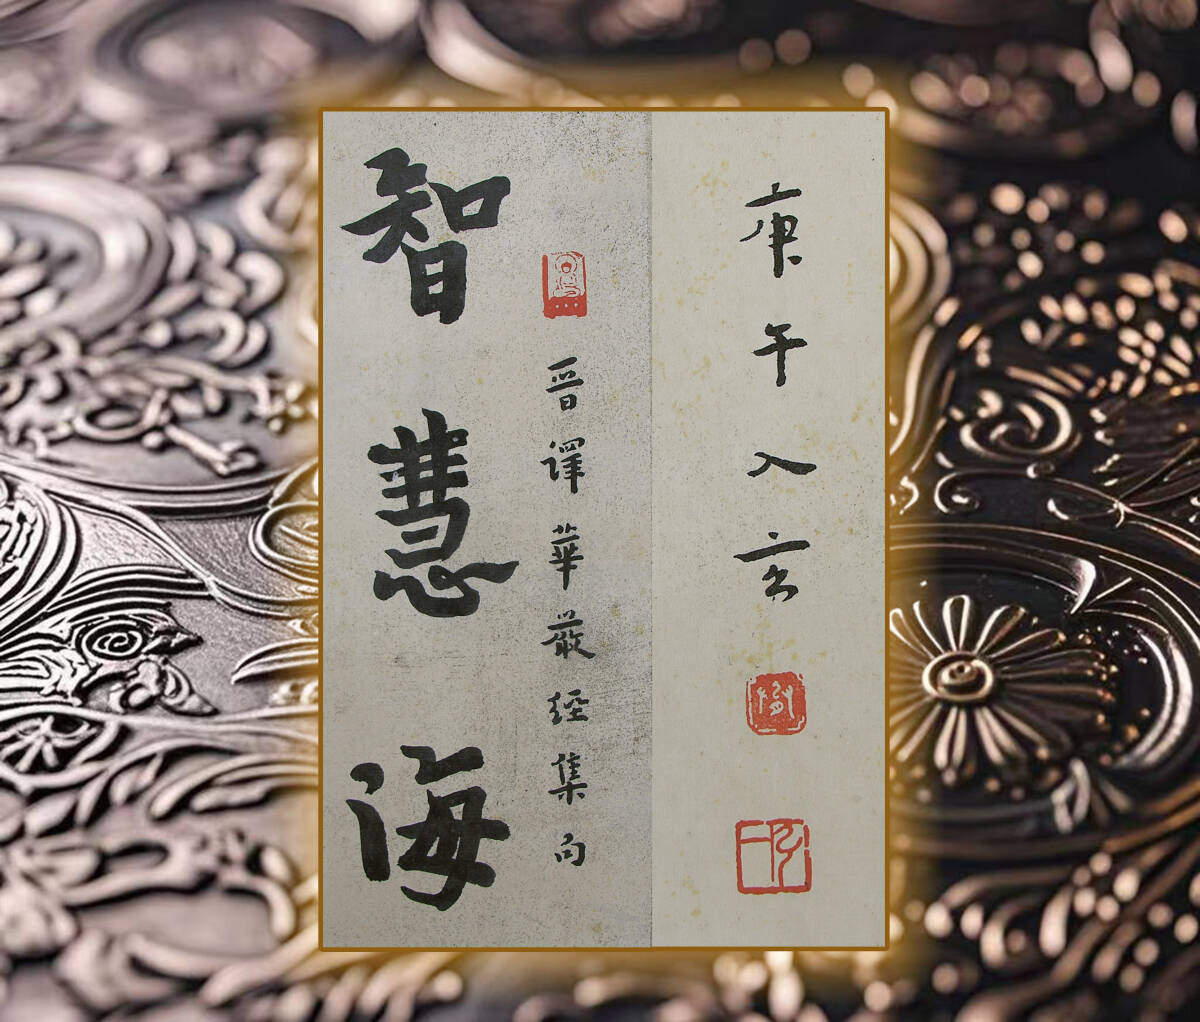 庚午入玄
晋譯華嚴經集句
智慧海